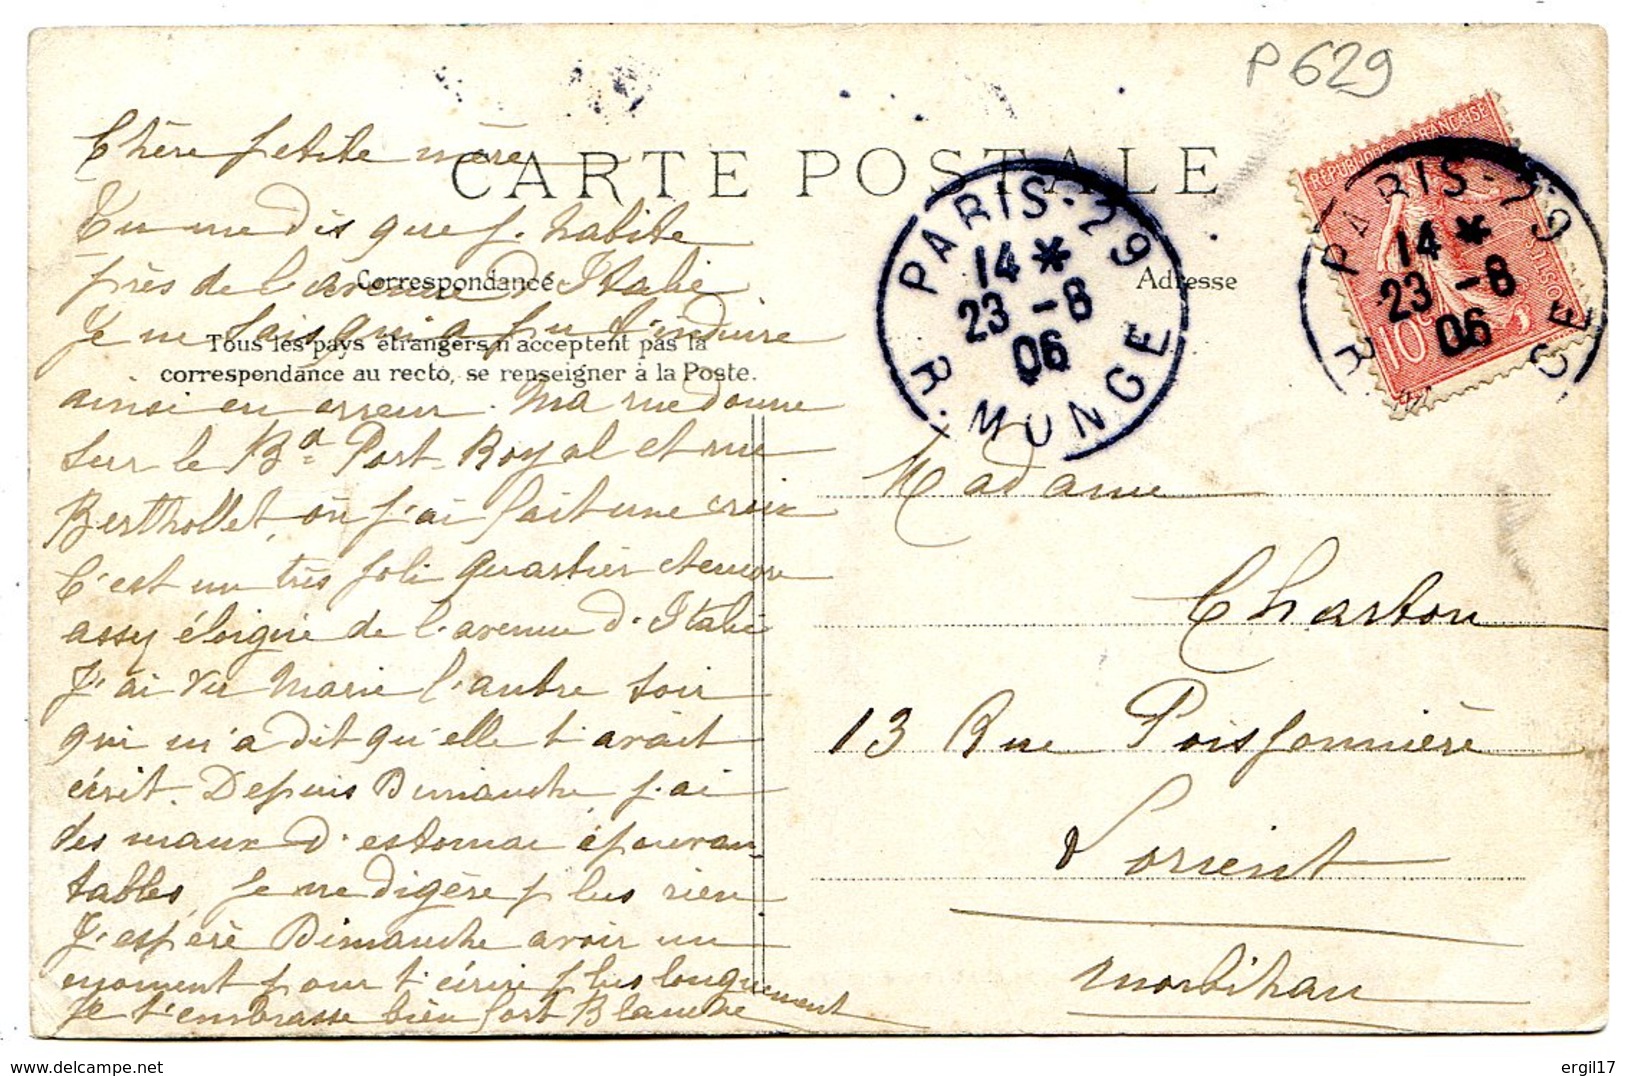 P 629
CARTE POSTALE
Correspondance
Adresse
Tous les pays étrangers n'acceptent pas la
correspondance au recto, se renseigner à la Poste.
Chère petite mère
Tu me dis que j'habite
près de l'avenue d'Italie
Je ne sais qui a pu t'induire
ainsi en erreur. Ma rue donne
sur le Bd Port-Royal et rue
Berthollet, où j'ai fait une croix
C'est un très joli quartier et encore
assez éloigné de l'avenue d'Italie
J'ai vu Marie l'autre soir
qui m'a dit qu'elle t'avait
écrit. Depuis Dimanche j'ai
des maux d'estomac épouvan-
tables, je ne digère plus rien
J'espère Dimanche avoir un
moment pour t'écrire plus longuement
Je t'embrasse bien fort Blanche
PARIS-29
14 *
23 -8
06
R. MONGE
REPUBLIQUE FRANÇAISE
POSTES
10c
PARIS-29
14 *
23 -8
06
R.
GE
Madame
Charton
13 Rue Poissonnière
Lorient
Morbihan
delcampe.net
ergil17